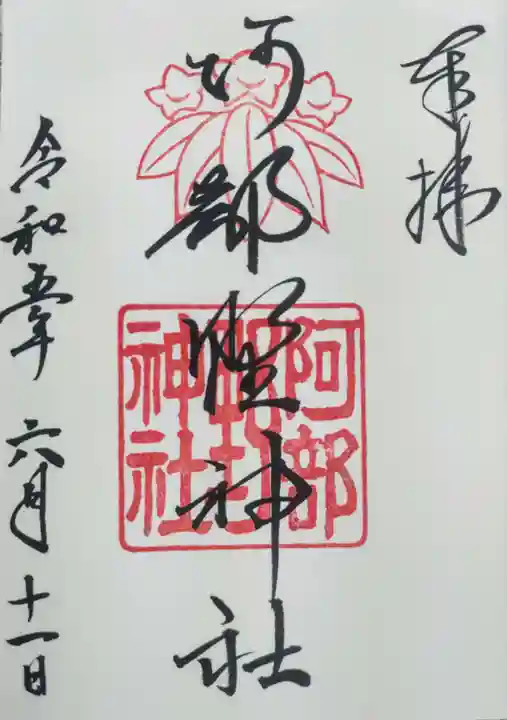 奉拝
阿部野神社
阿部
野
神社
令和五年 六月 十一日